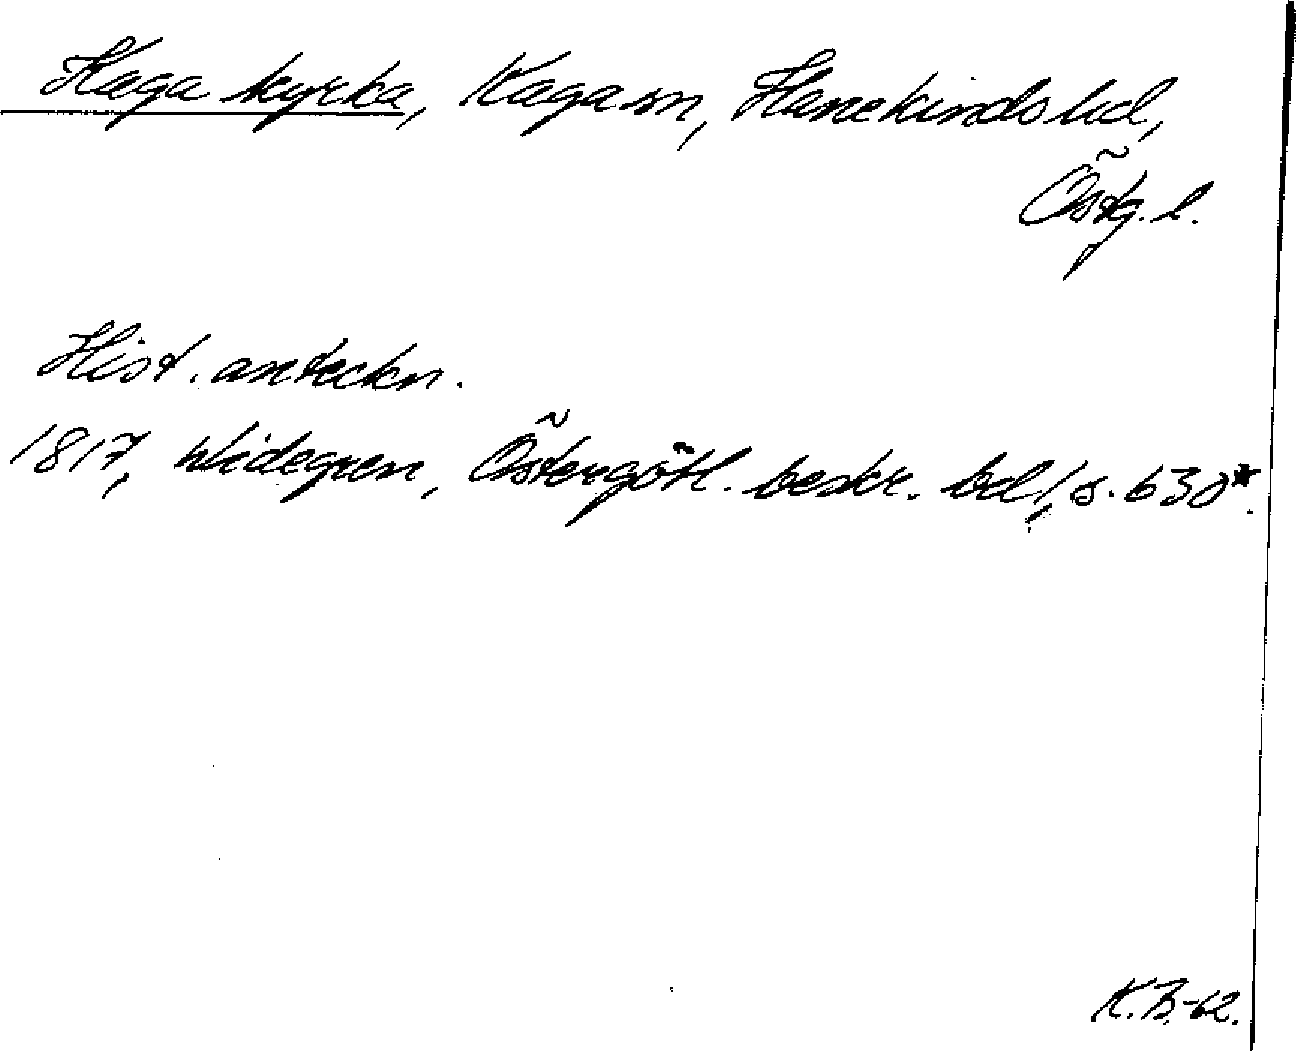 Kaga kyrka, Kaga sn, Hanekinds hd,
Östg. l.
Hist. anteckn.
1817, Widegren, Östergötl. beskr. bd 1, s. 630*.
K.B.-62.